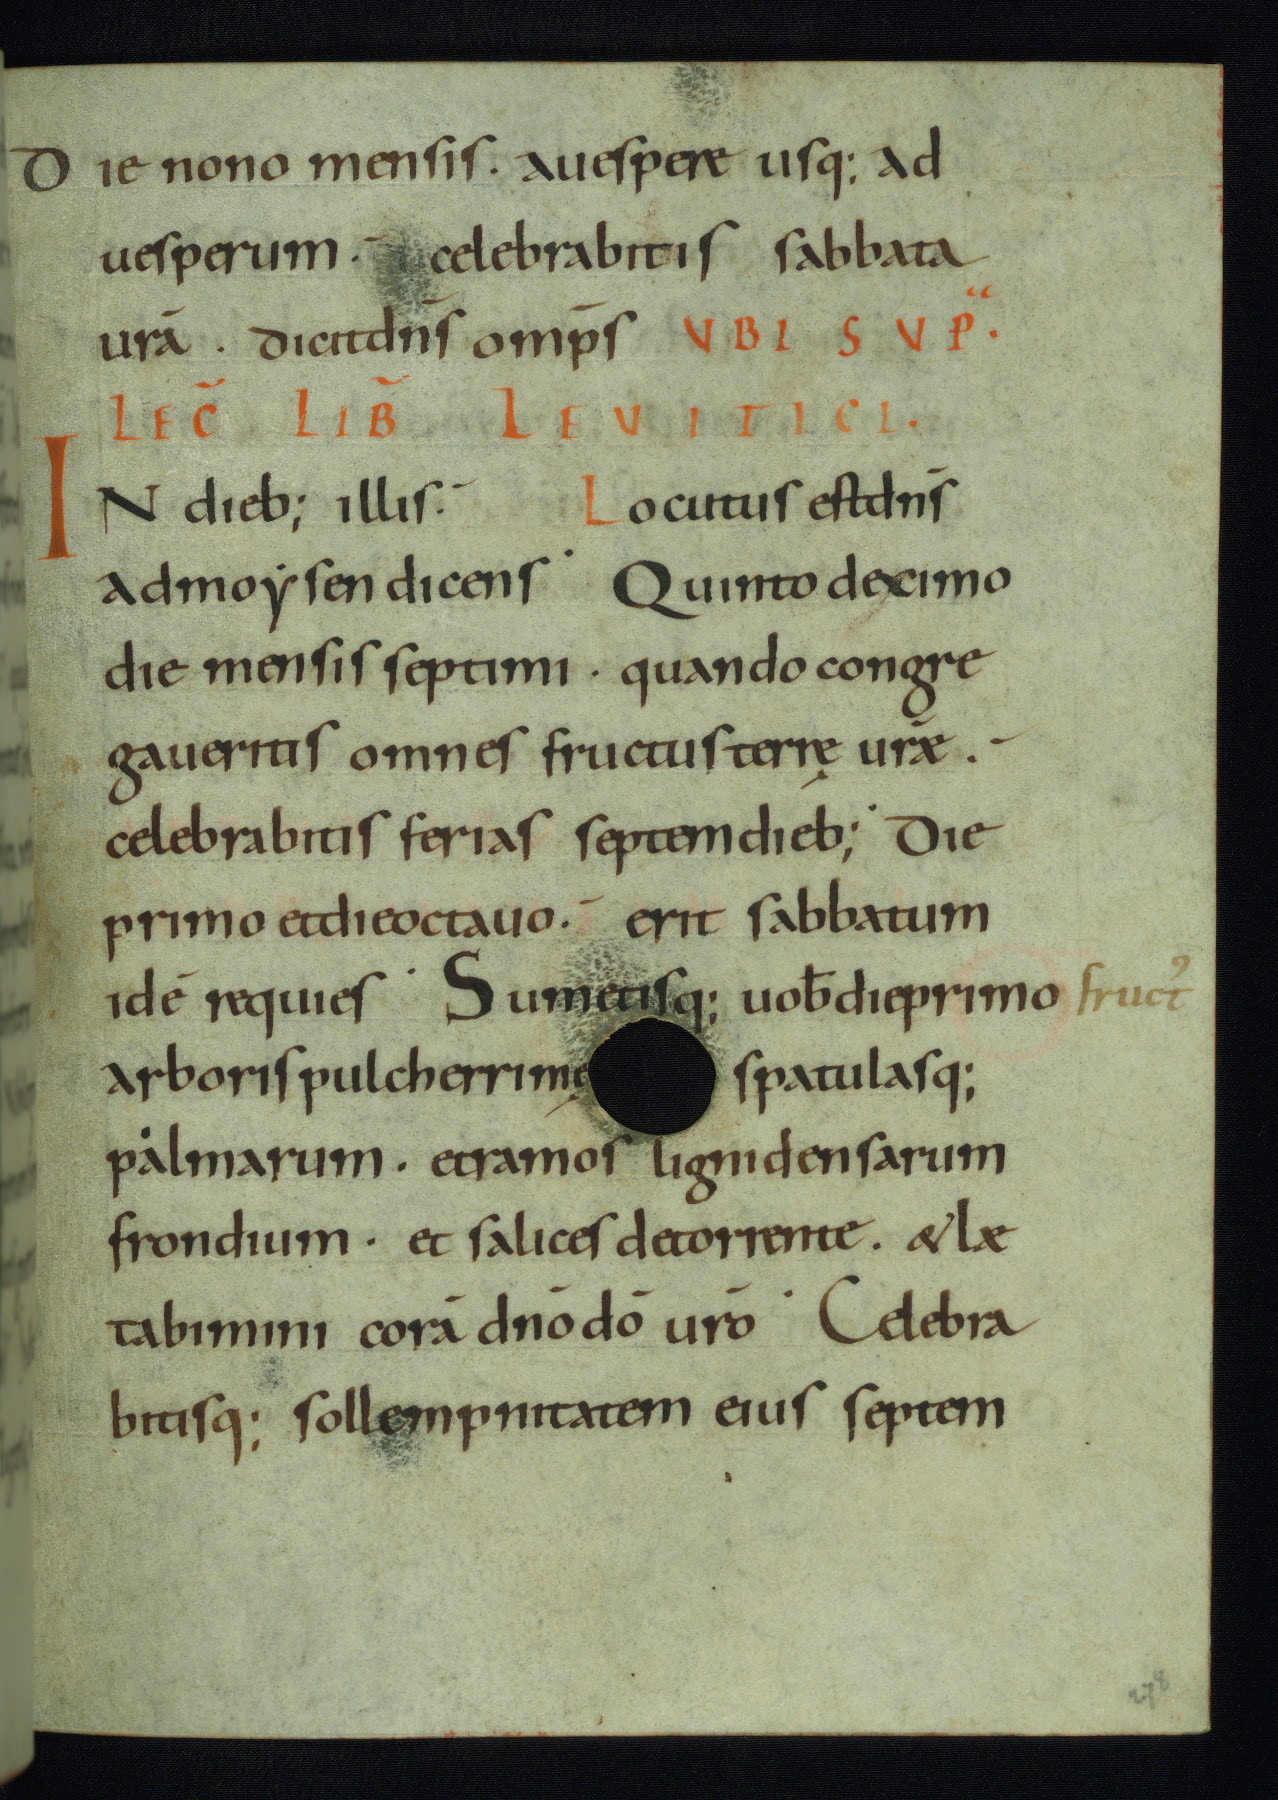 Die nono mensis. auespere usq; ad
uesperum. celebrabitis sabbata
urā. dicitdn̄s omp̄s VBI SVP̄.
LEC̄ LIB̄ LEVITICI.
IN dieb; illis. Locutus estdn̄s
admoẏsen dicens. Quinto decimo
die mensis septimi. quando congre
gaueritis omnes fructusterrę urǣ.
celebrabitis ferias septemdieb; Die
primo etdieoctauo. erit sabbatum
idē requies. Sumetisq; uob̄dieprimo fruct᾿
arborispulcherrimę spatulasq;
palmarum. etramos lignidensarum
frondium. et salices detorrente. & læ
tabimini corā dn̄o dō urō. Celebra
bitisq; sollempnitatem eius septem
278